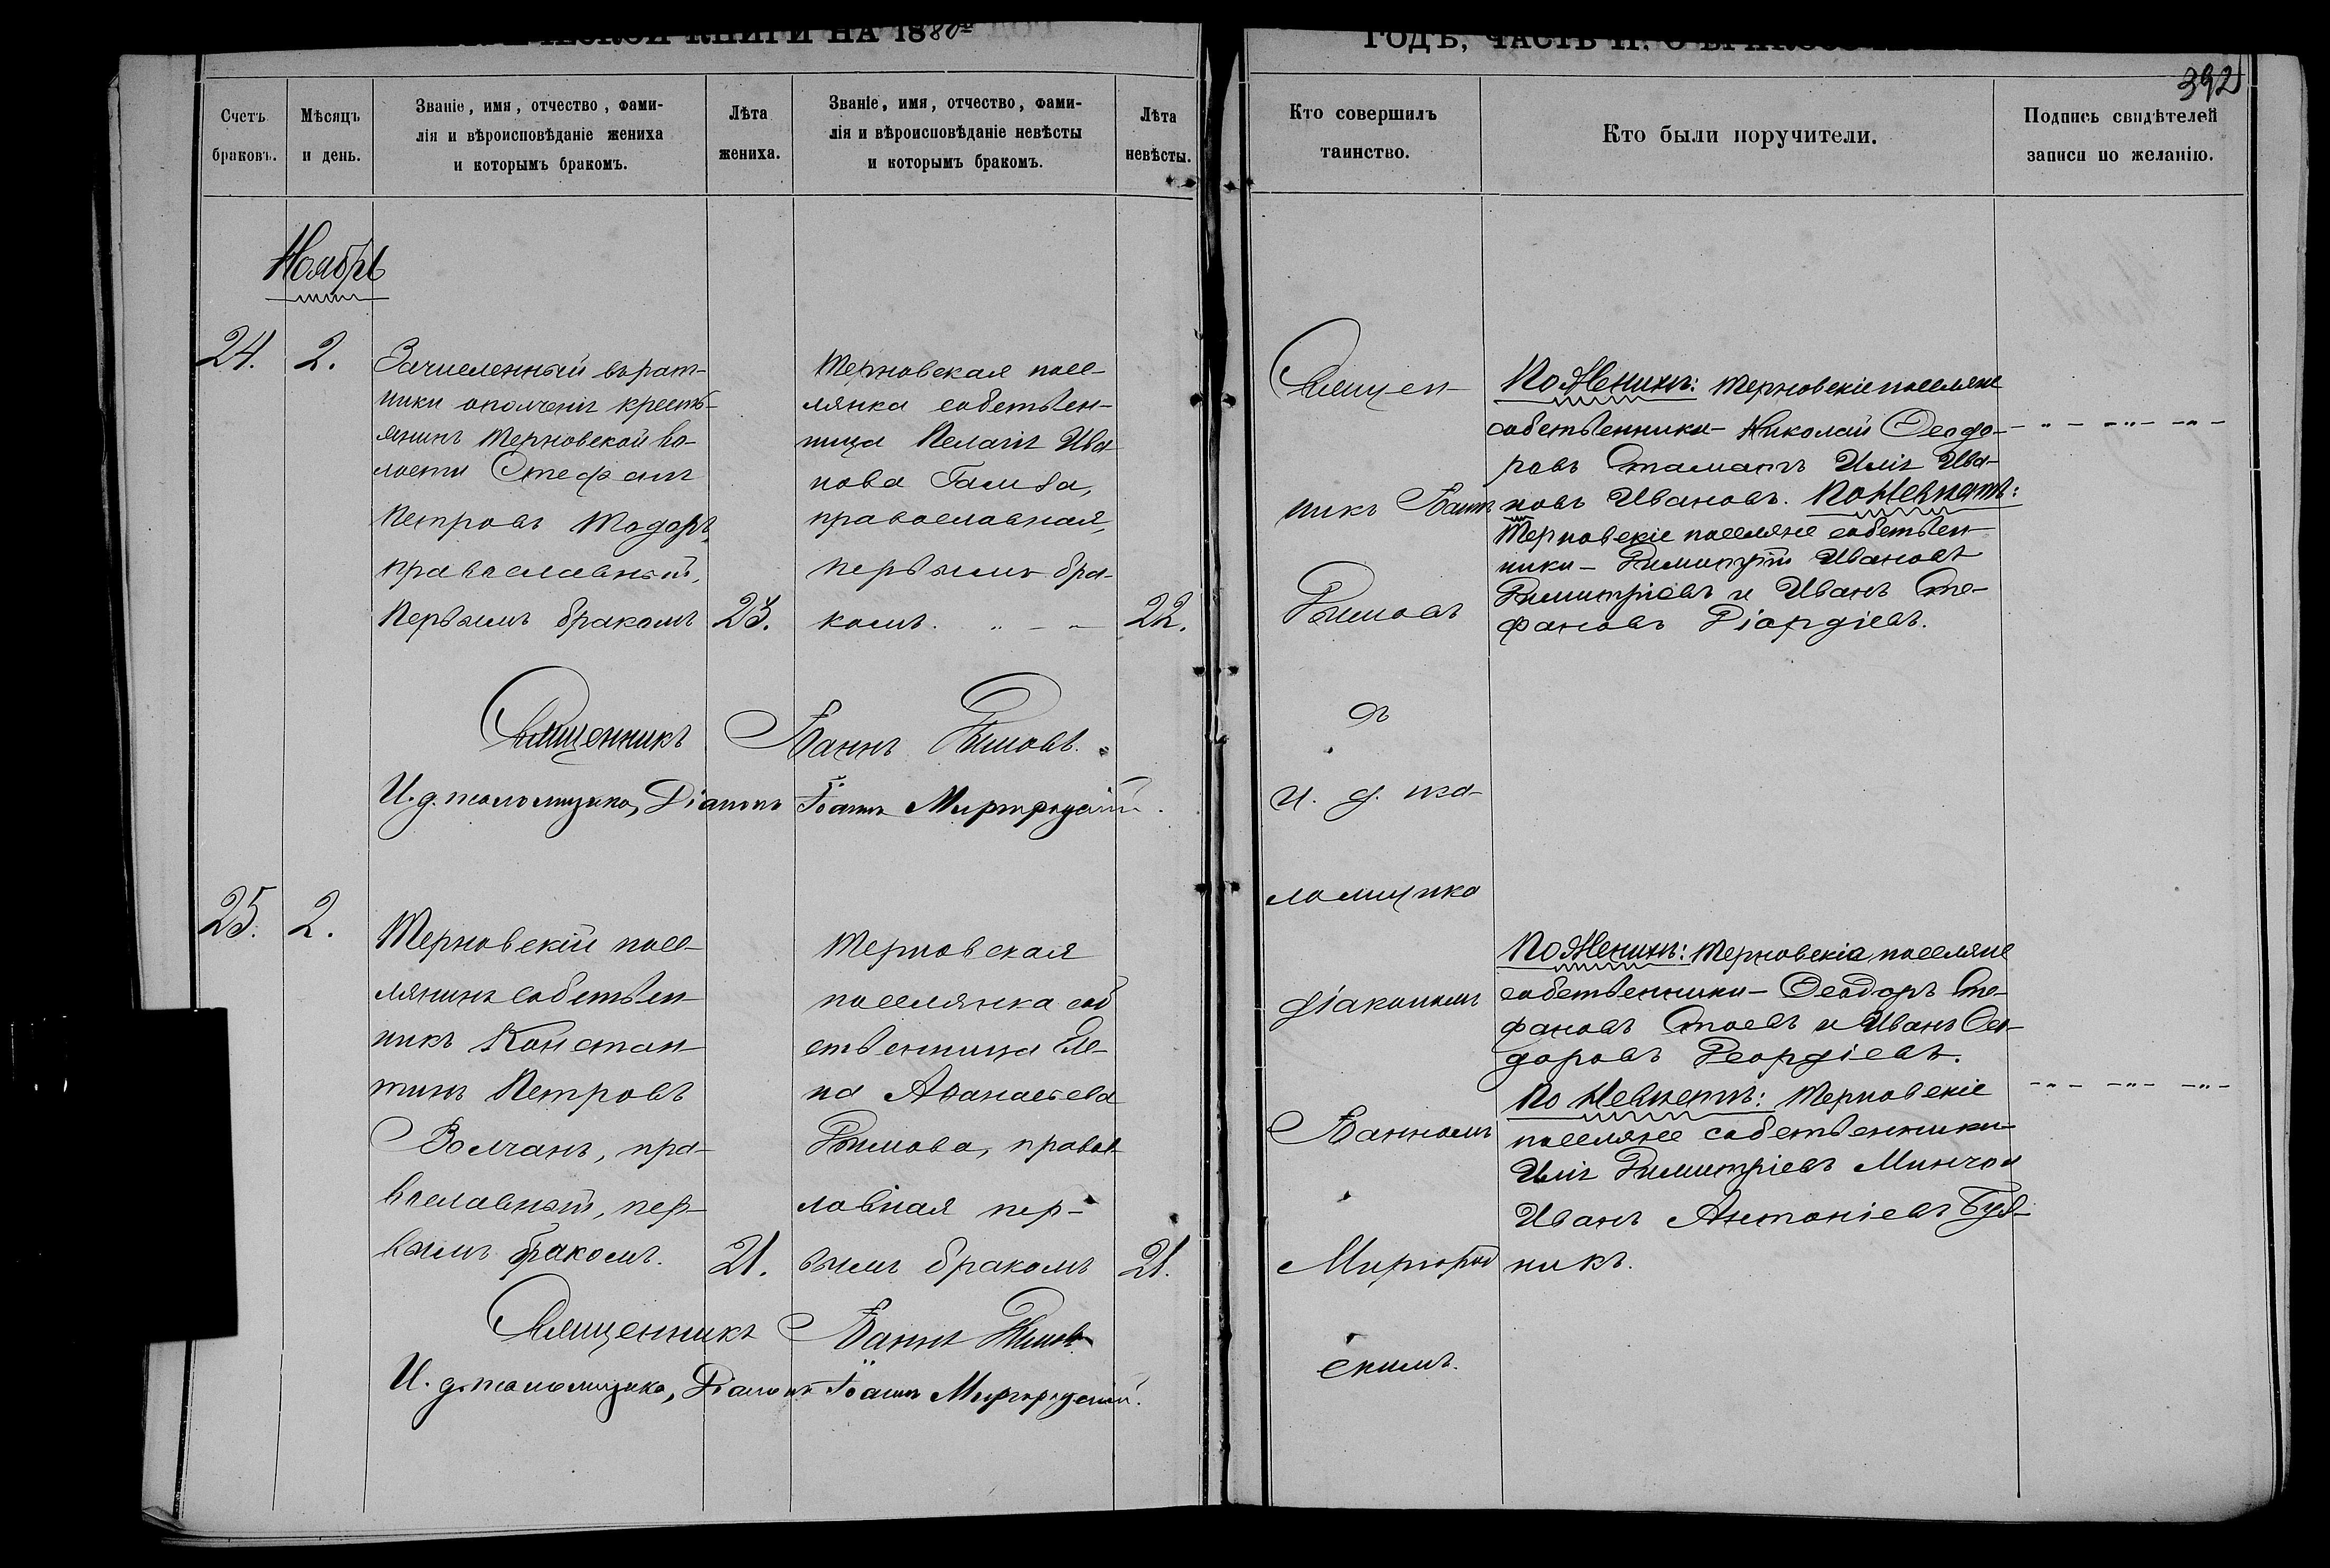 КНИГИ НА 1880й
ГОДЪ, ЧАСТЬ II. О
392
Счетъ браковъ.
Мѣсяцъ и день.
Званіе, имя, отчество, фами-
лія и вѣроисповѣданіе жениха
и которымъ бракомъ.
Лѣта жениха.
Званіе, имя, отчество, фами-
лія и вѣроисповѣданіе невѣсты
и которымъ бракомъ.
Лѣта невѣсты.
Кто совершилъ
таинство.
Кто были поручители.
Подпись свидѣтелей
записи по желанію.
Ноябрь
24.
2.
Зачисленный въ рат-
ники ополченія кресть-
янинъ Терновской во-
лости Стефанъ
Петровъ Тодоръ,
православный,
первымъ бракомъ
23.
Терновская посе-
лянка собствен-
ница Пелагія Ива
нова
православная,
первымъ бра-
комъ.
22.
Священ-
никъ Іоаннъ
Димовъ
съ
и. д. пса-
ломщика
діакономъ
Іоанномъ
Миргород
скимъ.
По Женихѣ: Терновскіе поселяне
собственники - Николай Ѳеодо-
ровъ Стаматъ Илія Ива-
новъ Ивановъ. По Невѣстѣ:
Терновскіе поселяне собствен-
ники - Димитрій Ивановъ
Димитріевъ и Иванъ Сте-
фановъ Гіоргіевъ.
Священникъ Іоаннъ Димовъ.
И. д. псаломщика, Діаконъ Іоаннъ Миргородскій.
25.
2.
Терновскій посе-
лянинъ собствен-
никъ Констан-
тинъ Петровъ
Волчанъ, пра-
вославный, пер-
вымъ бракомъ.
21.
Терновская
поселянка соб
ственница Еле-
на Аѳанасьева
Димова, правос
лавная пер-
вымъ бракомъ
21.
По Женихѣ: Терновскіе поселяне
собственники - Ѳеодоръ Сте-
фановъ Стоевъ и Иванъ Ѳео-
доровъ Георгіевъ.
По Невѣстѣ: Терновскіе
поселяне собственники -
Илія Димитріевъ Минчо и
Иванъ Антоніевъ
никъ.
Священникъ Іоаннъ Димовъ
И. д. псаломщика, Діаконъ Іоаннъ Миргородскій.